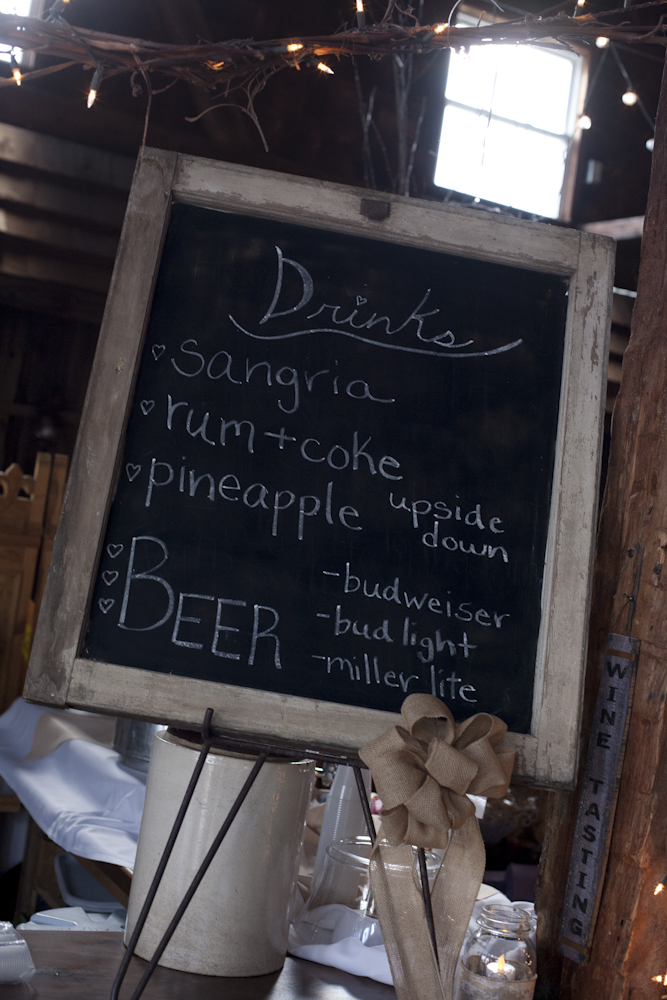 Drinks
sangria
rum + coke
pineapple upside
down
BEER
-budweiser
-bud light
-miller lite
WINE TASTING